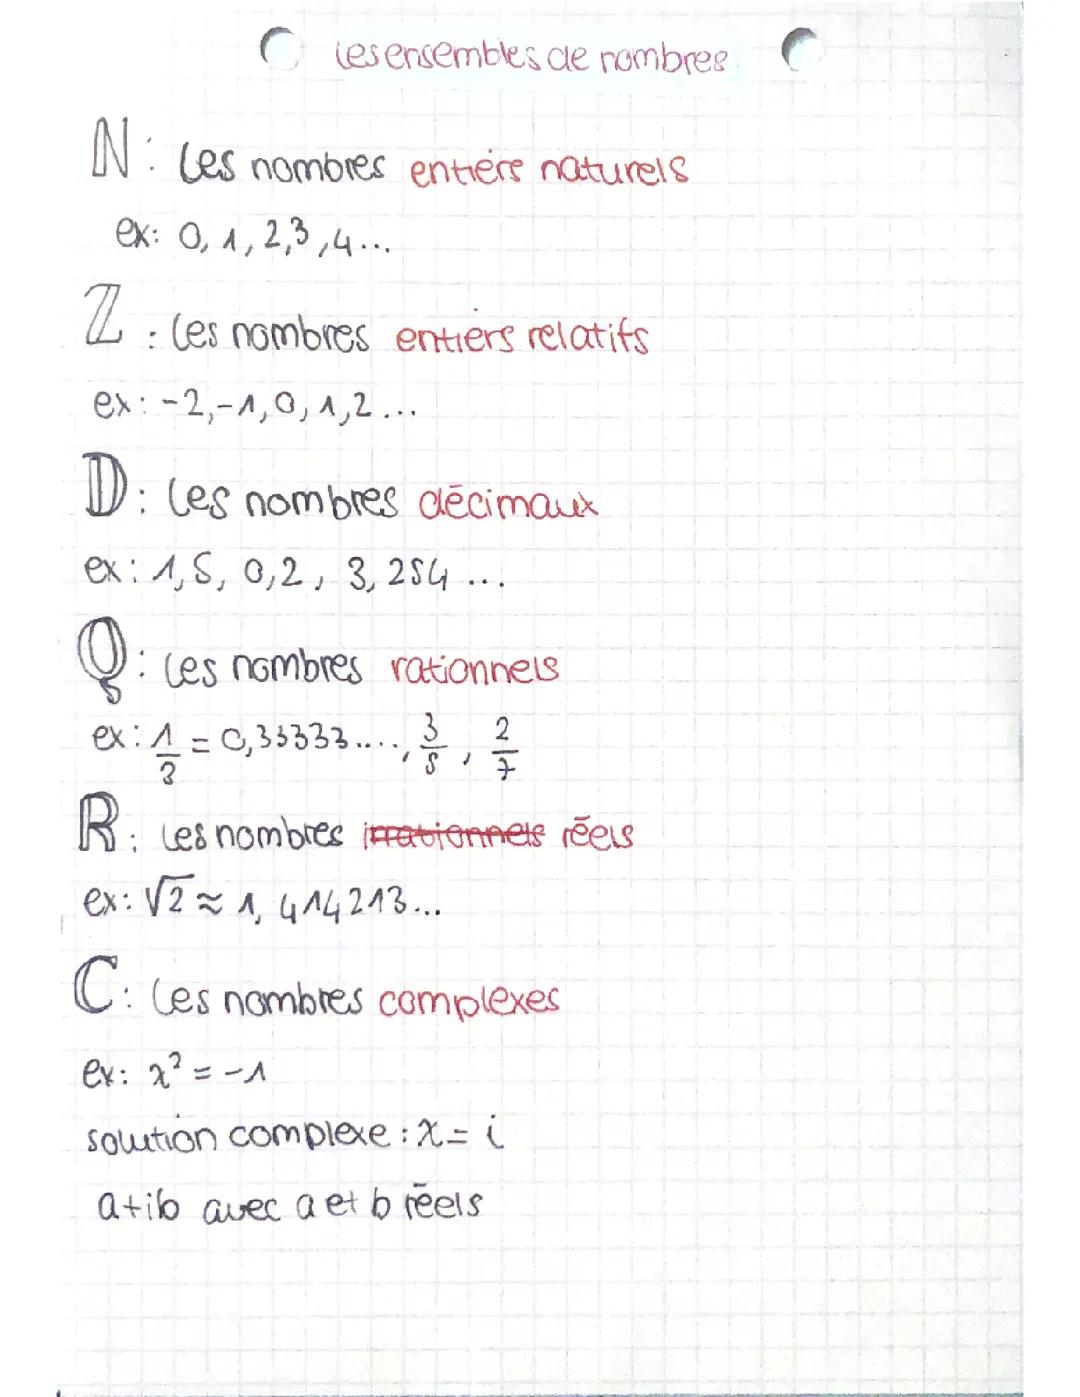 Les ensembles de nombres
ℕ : Les nombres entiers naturels
ex: 0, 1, 2, 3, 4...
ℤ : Les nombres entiers relatifs
ex: -2, -1, 0, 1, 2...
𝔻 : Les nombres décimaux
ex: 1,5, 0,2, 3,254 ...
ℚ : Les nombres rationnels
ex: 1/3 = 0,33333...., 3/5, 2/7
ℝ : Les nombres ~~irrationnels~~ réels
ex: √2 ≈ 1,414213...
ℂ : Les nombres complexes
ex: x² = -1
solution complexe : x = i
a+ib avec a et b réels